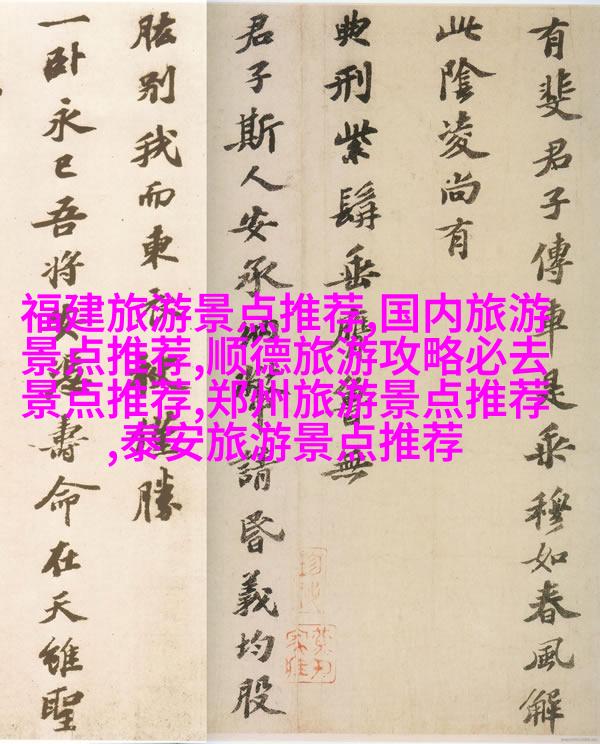 福建旅游景点推荐,国内旅游
景点推荐,顺德旅游攻略必去
景点推荐,郑州旅游景点推荐
,泰安旅游景点推荐
有斐君子傳車是乘穆如春風解
此陰凌尚有
典刑紫髯垂膺魯無
君子斯人安承請昏義均股
肱別我而東衣袂僅勝
一卧永已吾將安馮壽命在天雖聖